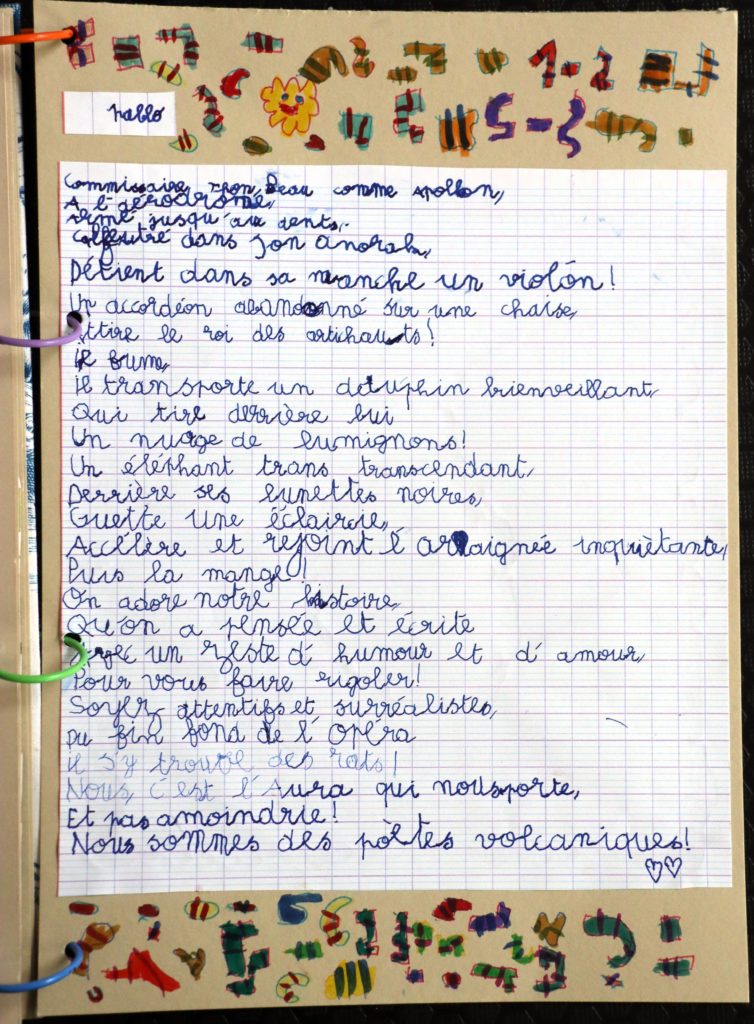 Pablo
Commissaire Tpon, Beau comme Apollon,
A l'aérodrome,
Armé jusqu'au dents,
Calfeutré dans son anorak,
Détient dans sa manche un violon!
Un accordéon abandonné sur une chaise,
Attire le roi des artichauts!
il fume,
il transporte un dauphin brienveillant,
Qui tire derrière lui
Un nuage de lumignons!
Un éléphant trans transcendant,
Derrière ses lunettes noires,
Guette une éclaircie,
Accélère et rejoint l'araignée inquiètante,
Puis la mange!
On adore notre histoire,
Qu'on a pensée et écrite
Avec un zeste d'humour et d'amour,
Pour vous faire rigoler!
Soyez attentifs et surréalistes,
Du fin fond de l'Opéra
il s'y trouve des rats!
Nous, c'est l'Aura qui nous porte,
Et pas amoindrie!
Nous sommes des pòètes volcaniques!